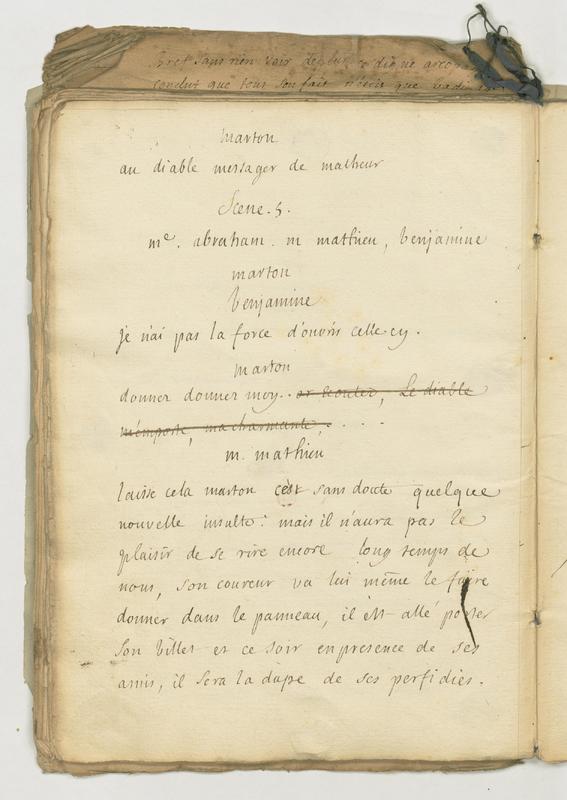 bret sans rien voir de
conclut que tous son fait
marton
au diable messager de malheur
Scene. 5.
me. abraham. m mathieu, benjamine
marton
benjamine
je n'ai pas la force d'ouvrir celle-cy.
marton
donner donner moy.. or ecouter, Le diable
m'emporte, ma charmante, . . . .
m. mathieu
laisse cela marton c'est sans doute quelque
nouvelle insulte: mais il n'aura pas le
plaisir de se rire encore long temps de
nous, son coureur va lui même le faire
donner dans le panneau, il est allé porter
son billet et ce soir en presence de ses
amis, il sera la dupe de ses perfidies.